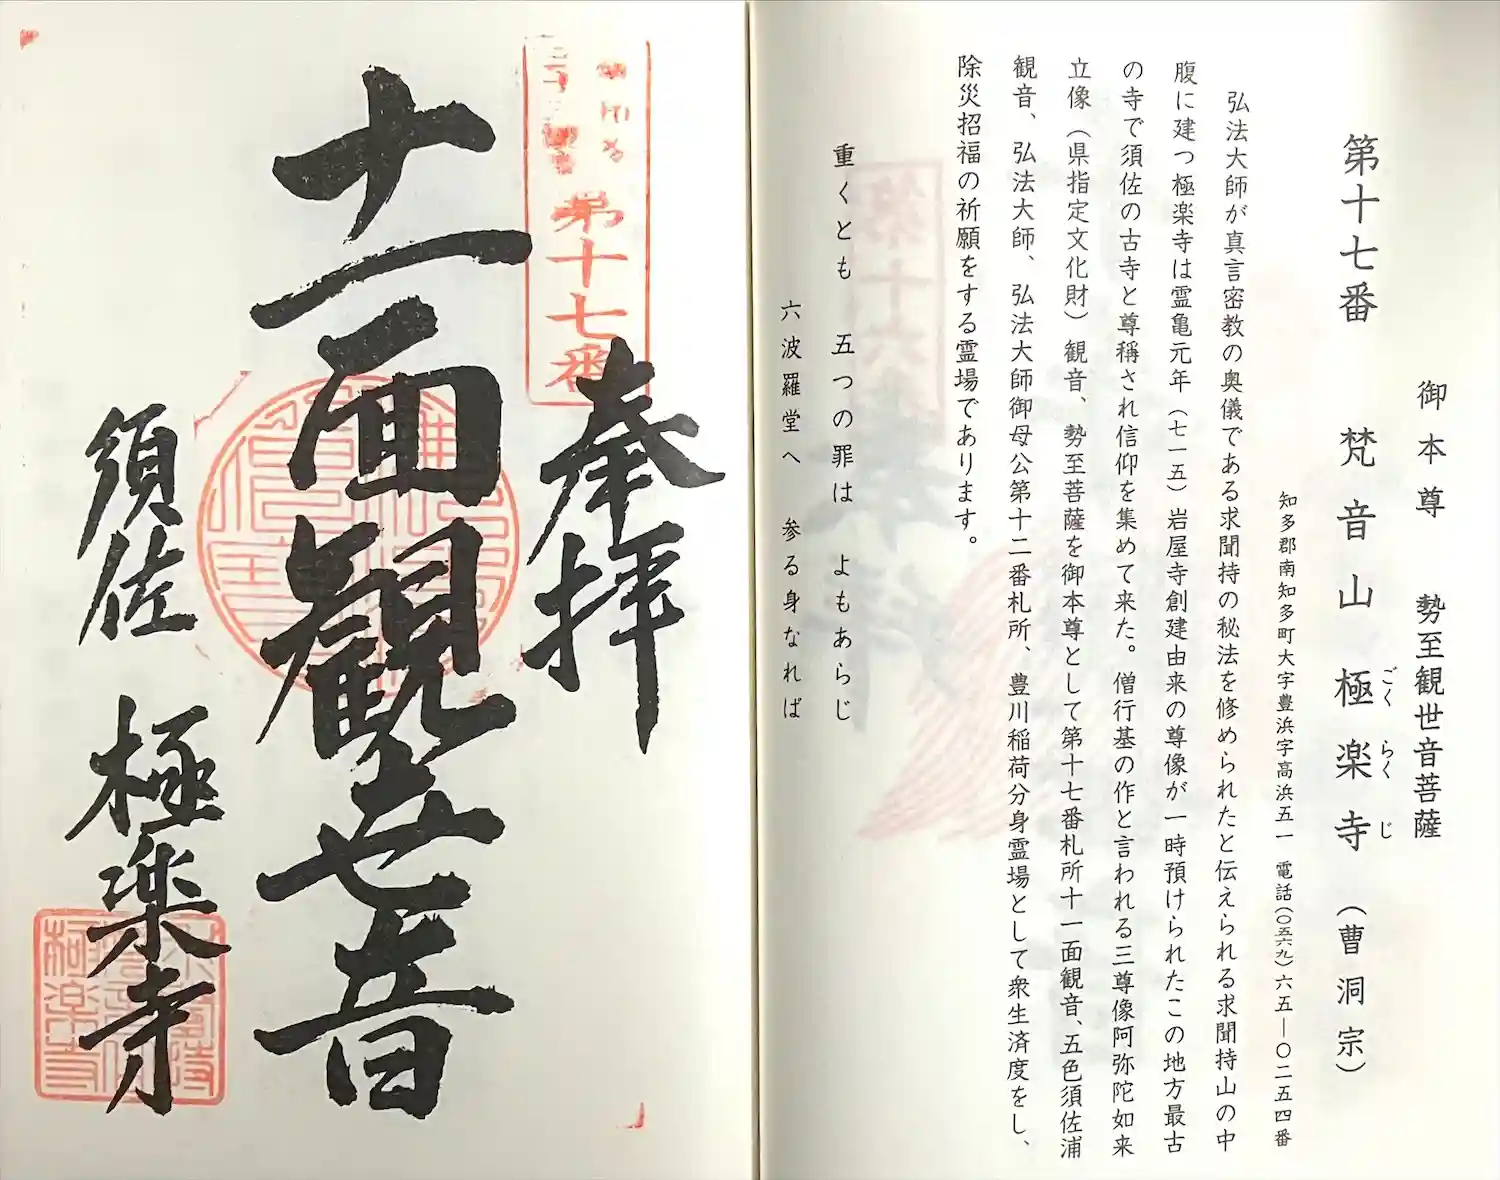 御本尊 勢至観世音菩薩
第十七番 梵音山 極楽寺(曹洞宗)
ごく らく じ
知多郡南知多町大字豊浜字高浜五一 電話(〇五六九)六五―〇二五四番
弘法大師が真言密教の奥儀である求聞持の秘法を修められたと伝えられる求聞持山の中
腹に建つ極楽寺は霊亀元年(七一五)岩屋寺創建由来の尊像が一時預けられたこの地方最古
の寺で須佐の古寺と尊称され信仰を集めて来た。僧行基の作と言われる三尊像阿弥陀如来
立像(県指定文化財)観音、勢至菩薩を御本尊として第十七番札所十一面観音、五色須佐浦
観音、弘法大師、弘法大師御母公第十二番札所、豊川稲荷分身霊場として衆生済度をし、
除災招福の祈願をする霊場であります。
重くとも 五つの罪は よもあらじ
六波羅堂へ 参る身なれば
第十七番
奉拝
十一面観世音
須佐 極楽寺